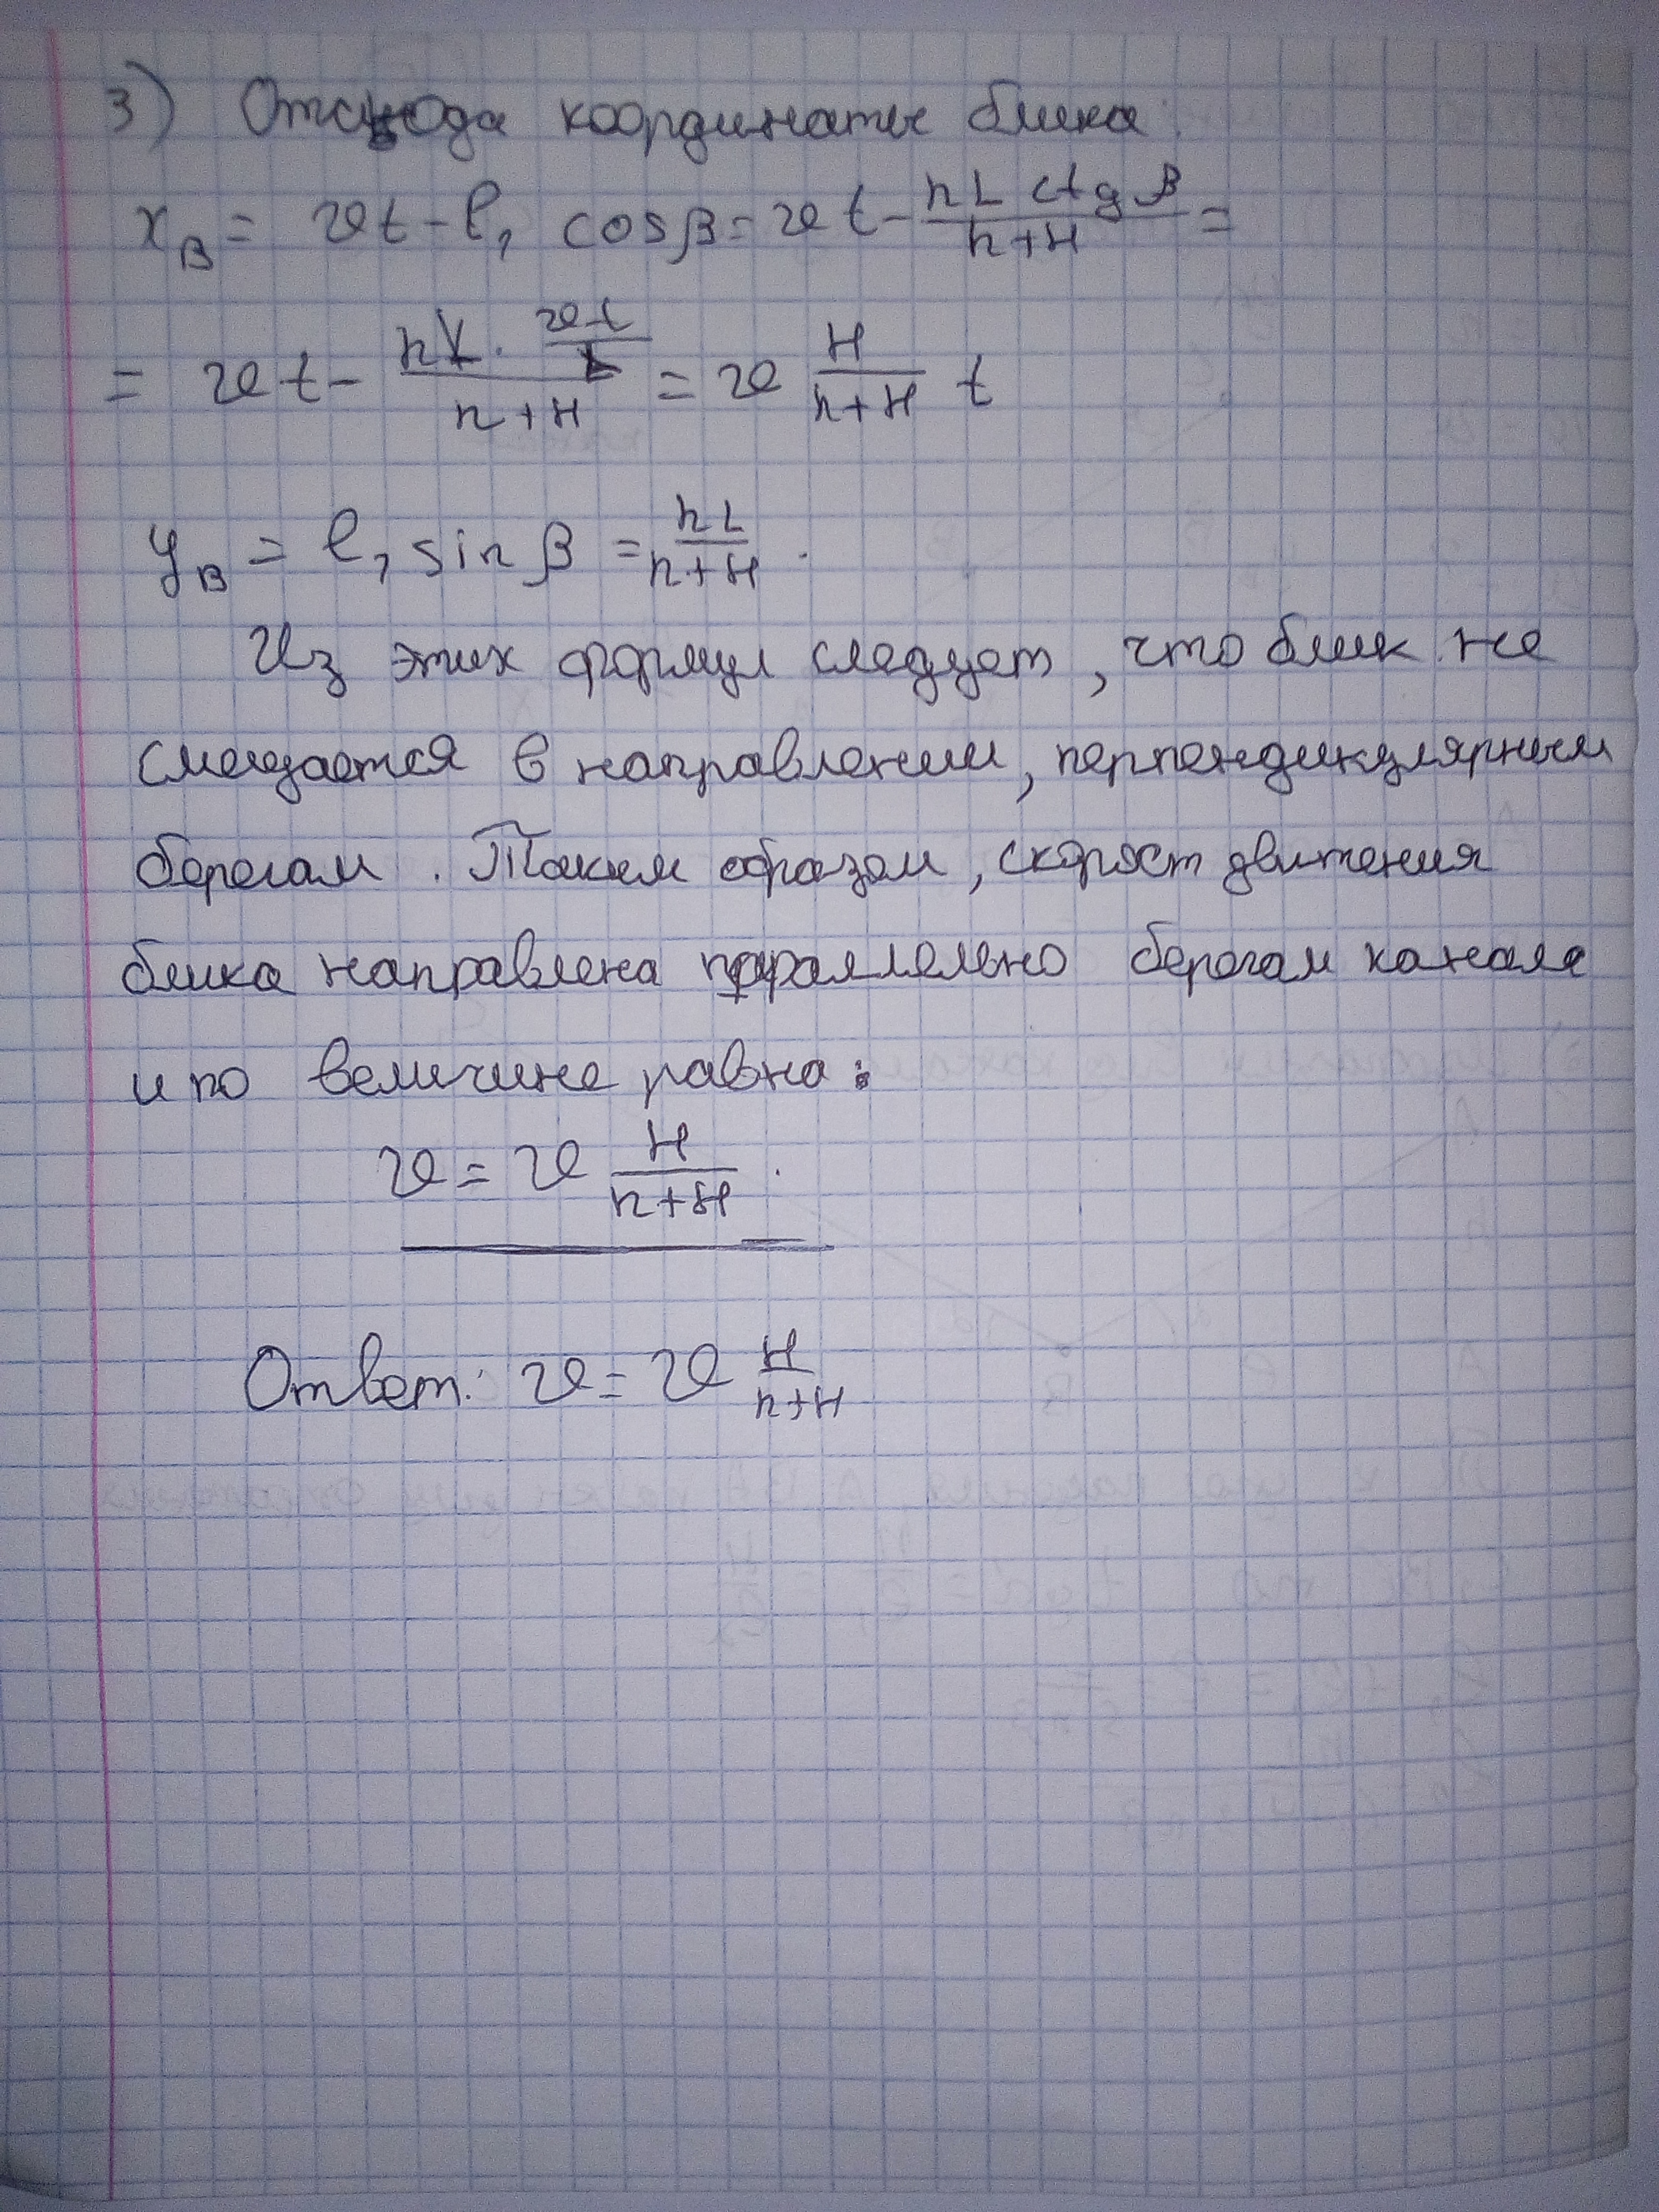 3) Отсюда координаты блика:
x_B = vt - l_1 cosβ = vt - (hL ctgβ)/(h+H) =
= vt - (hL · vt/L)/(h+H) = v H/(h+H) t
y_B = l_1 sinβ = hL/(h+H).
Из этих формул следует, что блик не
смещается в направлении, перпендикулярным
берегам. Таким образом, скорост движения
блика направлена параллельно берегам канала
и по величине равна:
v = v H/(h+H).
Ответ: v = v H/(h+H)